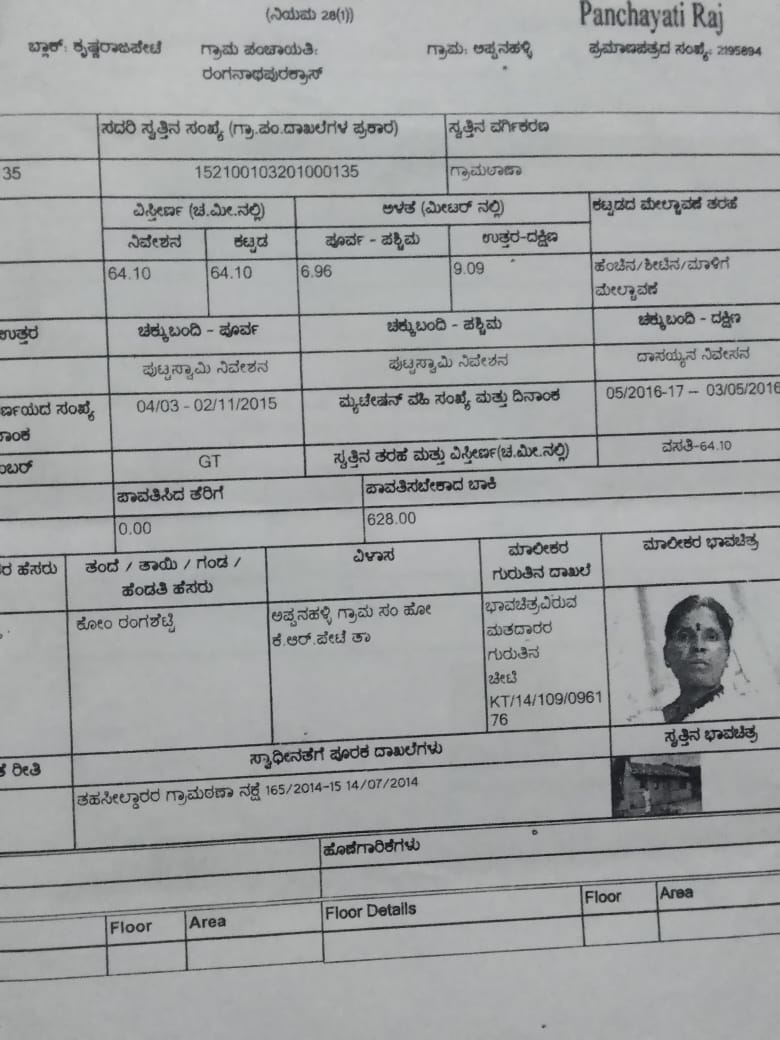 (ನಿಯಮ 28(1))
Panchayati Raj
ಬ್ಲಾಕ್: ಕೃಷ್ಣರಾಜಪೇಟೆ ಗ್ರಾಮ ಪಂಚಾಯತಿ: ಗ್ರಾಮ: ಅಪ್ಪನಹಳ್ಳಿ ಪ್ರಮಾಣಪತ್ರದ ಸಂಖ್ಯೆ: 2195894
ರಂಗನಾಥಪುರಕ್ರಾಸ್
ಸದರಿ ಸ್ವತ್ತಿನ ಸಂಖ್ಯೆ (ಗ್ರಾ.ಪಂ.ದಾಖಲೆಗಳ ಪ್ರಕಾರ) ಸ್ವತ್ತಿನ ವರ್ಗೀಕರಣ
35 152100103201000135 ಗ್ರಾಮಠಾಣಾ
ವಿಸ್ತೀರ್ಣ (ಚ.ಮೀ.ನಲ್ಲಿ) ಅಳತೆ (ಮೀಟರ್ ನಲ್ಲಿ) ಕಟ್ಟಡದ ಮೇಲ್ಚಾವಣಿ ತರಹೆ
ನಿವೇಶನ ಕಟ್ಟಡ ಪೂರ್ವ - ಪಶ್ಚಿಮ ಉತ್ತರ-ದಕ್ಷಿಣ
64.10 64.10 6.96 9.09 ಹೆಂಚಿನ/ಶೀಟಿನ/ಮಾಳಿಗೆ
ಮೇಲ್ಚಾವಣಿ
ಉತ್ತರ ಚಕ್ಕುಬಂದಿ - ಪೂರ್ವ ಚಕ್ಕುಬಂದಿ - ಪಶ್ಚಿಮ ಚಕ್ಕುಬಂದಿ - ದಕ್ಷಿಣ
ಪುಟ್ಟಸ್ವಾಮಿ ನಿವೇಶನ ಪುಟ್ಟಸ್ವಾಮಿ ನಿವೇಶನ ದಾಸಯ್ಯನ ನಿವೇಸನ
ರ್ಣಯದ ಸಂಖ್ಯೆ 04/03 - 02/11/2015 ಮ್ಯುಟೇಷನ್ ವಹಿ ಸಂಖ್ಯೆ ಮತ್ತು ದಿನಾಂಕ 05/2016-17 -- 03/05/2016
ನಾಂಕ
ಂಬರ್ GT ಸ್ವತ್ತಿನ ತರಹೆ ಮತ್ತು ವಿಸ್ತೀರ್ಣ(ಚ.ಮೀ.ನಲ್ಲಿ) ವಸತಿ-64.10
ಪಾವತಿಸಿದ ತೆರಿಗೆ ಪಾವತಿಸಬೇಕಾದ ಬಾಕಿ
0.00 628.00
ರ ಹೆಸರು ತಂದೆ / ತಾಯಿ / ಗಂಡ / ವಿಳಾಸ ಮಾಲೀಕರ ಮಾಲೀಕರ ಭಾವಚಿತ್ರ
ಹೆಂಡತಿ ಹೆಸರು ಗುರುತಿನ ದಾಖಲೆ
ಕೋಂ ರಂಗಶೆಟ್ಟಿ ಅಪ್ಪನಹಳ್ಳಿ ಗ್ರಾಮ ಸಂ ಹೋ ಭಾವಚಿತ್ರವಿರುವ
ಕೆ.ಆರ್.ಪೇಟೆ ತಾ ಮತದಾರರ
ಗುರುತಿನ
ಚೀಟಿ
KT/14/109/0961
76
ಸ್ವತ್ತಿನ ಭಾವಚಿತ್ರ
ಕೆ ರೀತಿ ಸ್ವಾಧೀನತೆಗೆ ಪೂರಕ ದಾಖಲೆಗಳು
ತಹಸೀಲ್ದಾರರ ಗ್ರಾಮಠಣಾ ನಕ್ಷೆ 165/2014-15 14/07/2014
ಹೊಣೆಗಾರಿಕೆಗಳು
Floor Area Floor Details Floor Area